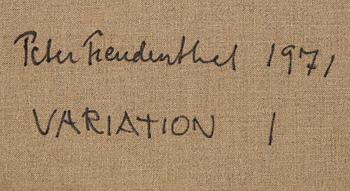 Peter Freudenthal 1971
VARIATION 1